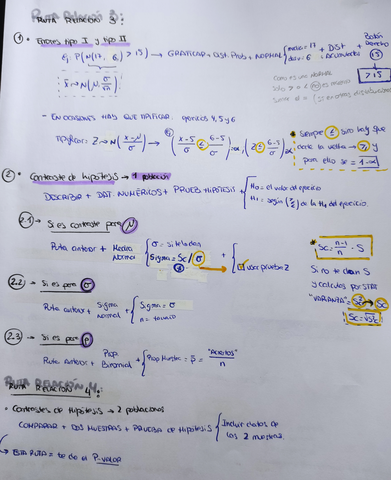 RUTA RELACIÓN 3:
1 • Errores tipo I y tipo II
Ej: P(N(17, 6) > 15) → GRAFICAR + Dist. Prob + NORMAL { media = 17 desv = 6 + DIST Acumulada
Botón Derecho
(15)
> 15
X̄ → N(μ, σ/√n)
- EN OCASIONES HAY QUE TIPIFICAR. 4, 5 y 6
Tipificar: Z → N(x-μ/σ) → Ej (x-5/σ ≤ 6-5/σ) = α, (Z ≤ 6-5/σ) α
* Siempre ≤ si no hay que
darle la vuelta → ≥ y
para ello se = 1-α
2. • Contraste de hipótesis → 1 población
DESCRIBIR + DAT. NUMÉRICOS + PRUEB. HIPÓTESIS + { H0 = el valor del ejercicio
H1 = según
2.1) → Si es contraste para μ
Ruta anterior + Media Normal { σ = si te la dan
Sigma = Sc / σ + { usar prueba Z
* Sc = n-1/n · S
Si no te dan S
y calculas por STAT
"VARIANZA" = Sc² → Sc
Sc = √Sc²
2.2) → Si es para σ
Ruta anterior + Sigma Normal + { Sigma = σ
n = tamaño
2.3) → Si es para p
Ruta anterior + Prop Binomial + { Prop Muestr = p̂ = "Aciertos"/n
RUTA RELACIÓN 4:
• Contrastes de Hipótesis → 2 poblaciones
COMPARAR + DOS MUESTRAS + PRUEBA de HIPÓTESIS { Incluir datos de
las 2 muestras
↳ ESTA RUTA = te da el P-VALOR